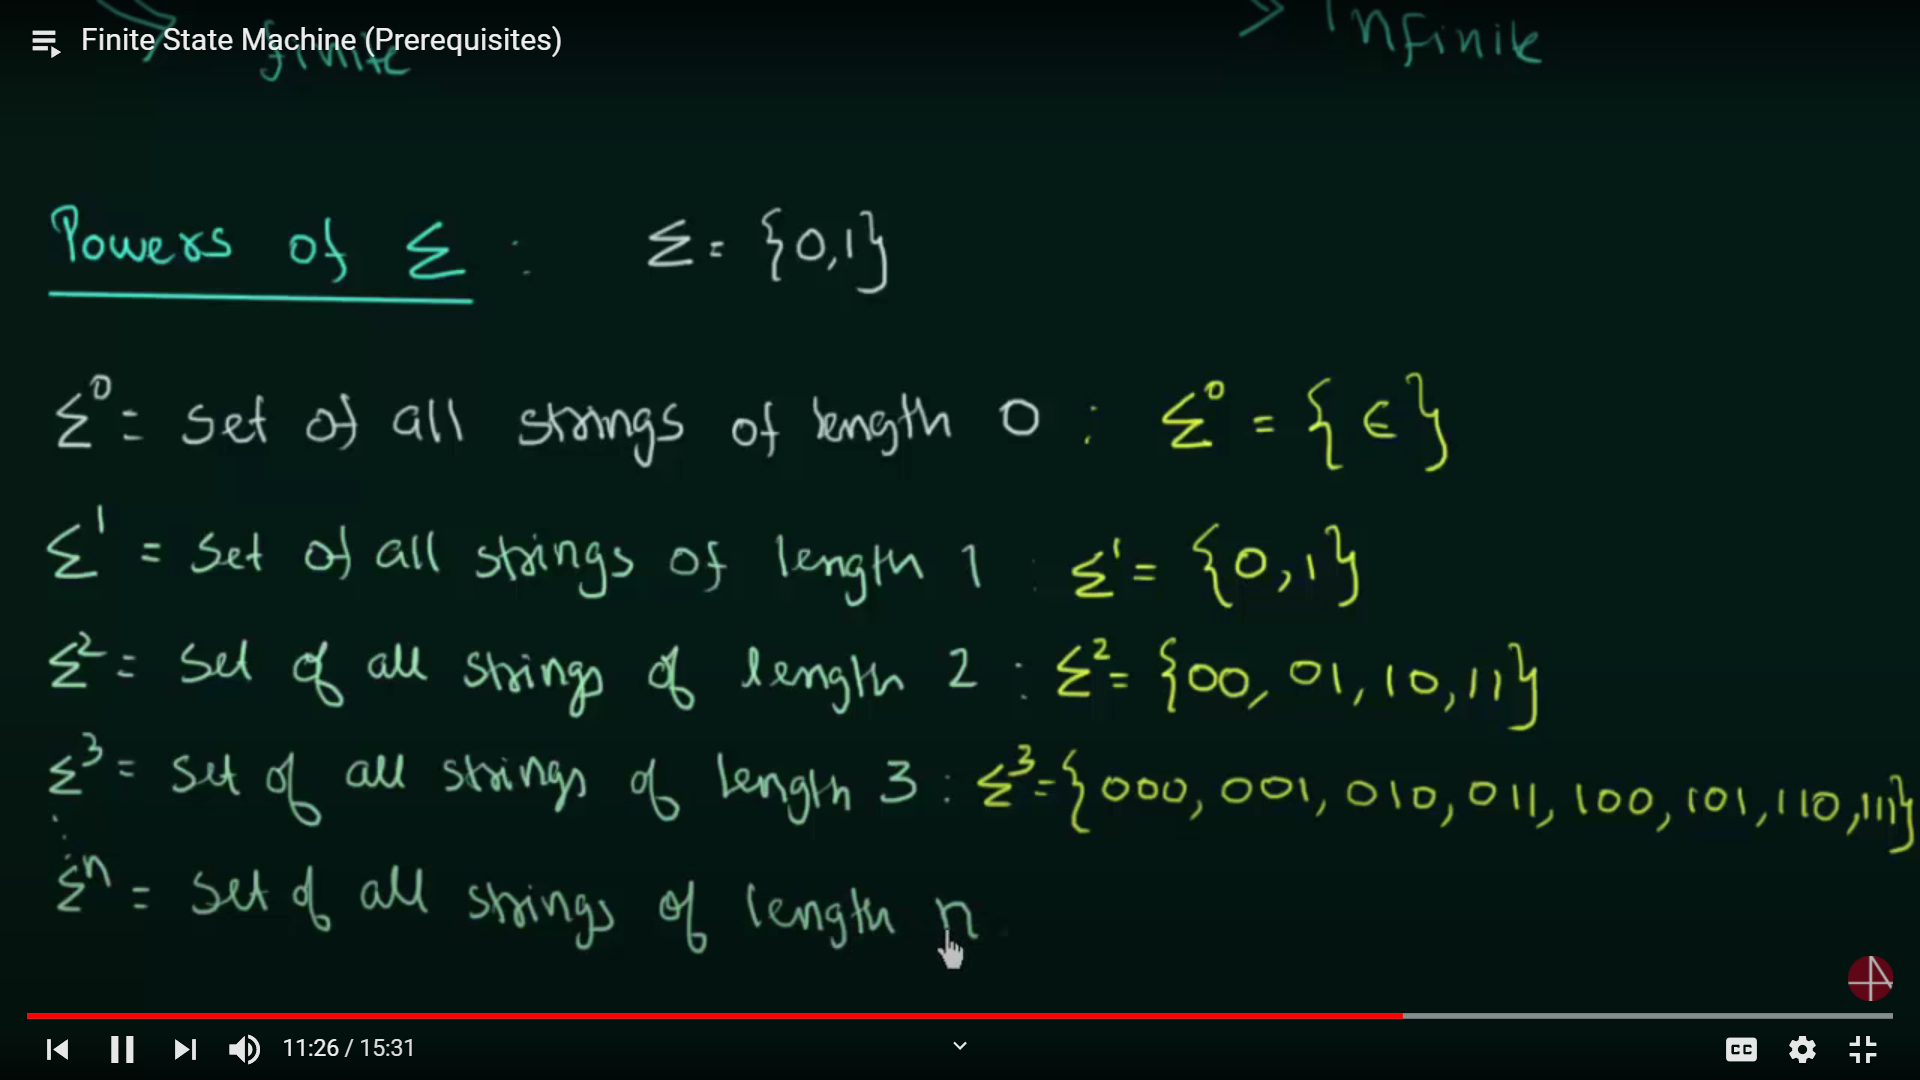 Finite State Machine (Prerequisites)
finite
> Infinite
Powers of Σ : Σ = {0,1}
Σ⁰ = Set of all strings of length 0 : Σ⁰ = { ϵ }
Σ¹ = Set of all strings of length 1 : Σ¹ = {0,1}
Σ² = Set of all strings of length 2 : Σ² = {00, 01, 10, 11}
Σ³ = Set of all strings of length 3 : Σ³ = {000, 001, 010, 011, 100, 101, 110, 111}
Σⁿ = Set of all strings of length n
11:26 / 15:31
CC